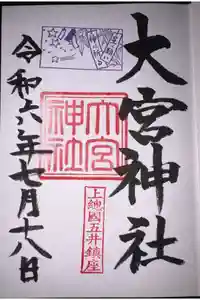 大宮神社
大宮
神社
上總國五井鎮座
令和六年七月十八日